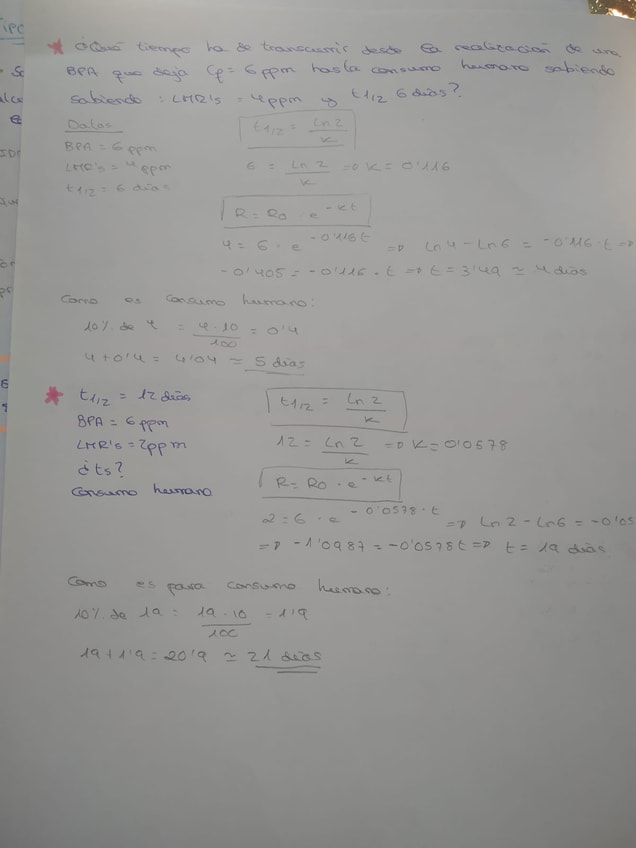 ¿Qué tiempo ha de transcurrir desde la realización de una
BPA que deja Cp = 6 ppm hasta consumo humano sabiendo
sabiendo : LMR's = 4ppm y t1/2 6 días?
Datos
BPA = 6 ppm
LMR's = 4 ppm
t1/2 = 6 días
t1/2 = Ln 2 / K
6 = Ln 2 / K => K = 0'116
R = R0 · e^-Kt
4 = 6 · e^-0'116t => Ln 4 - Ln 6 = -0'116 · t =>
-0'405 = -0'116 · t => t = 3'49 ≃ 4 días
Como es consumo humano:
10% de 4 = 4·10 / 100 = 0'4
4 + 0'4 = 4'04 ≃ 5 días
t1/2 = 12 días
BPA = 6 ppm
LMR's = 2ppm
¿ts?
Consumo humano
t1/2 = Ln 2 / K
12 = Ln 2 / K => K = 0'0578
R = R0 · e^-Kt
2 = 6 · e^-0'0578·t => Ln 2 - Ln 6 = -0'05
=> -1'0987 = -0'0578t => t = 19 días
Como es para consumo humano:
10% de 19 = 19·10 / 100 = 1'9
19 + 1'9 = 20'9 ≃ 21 días